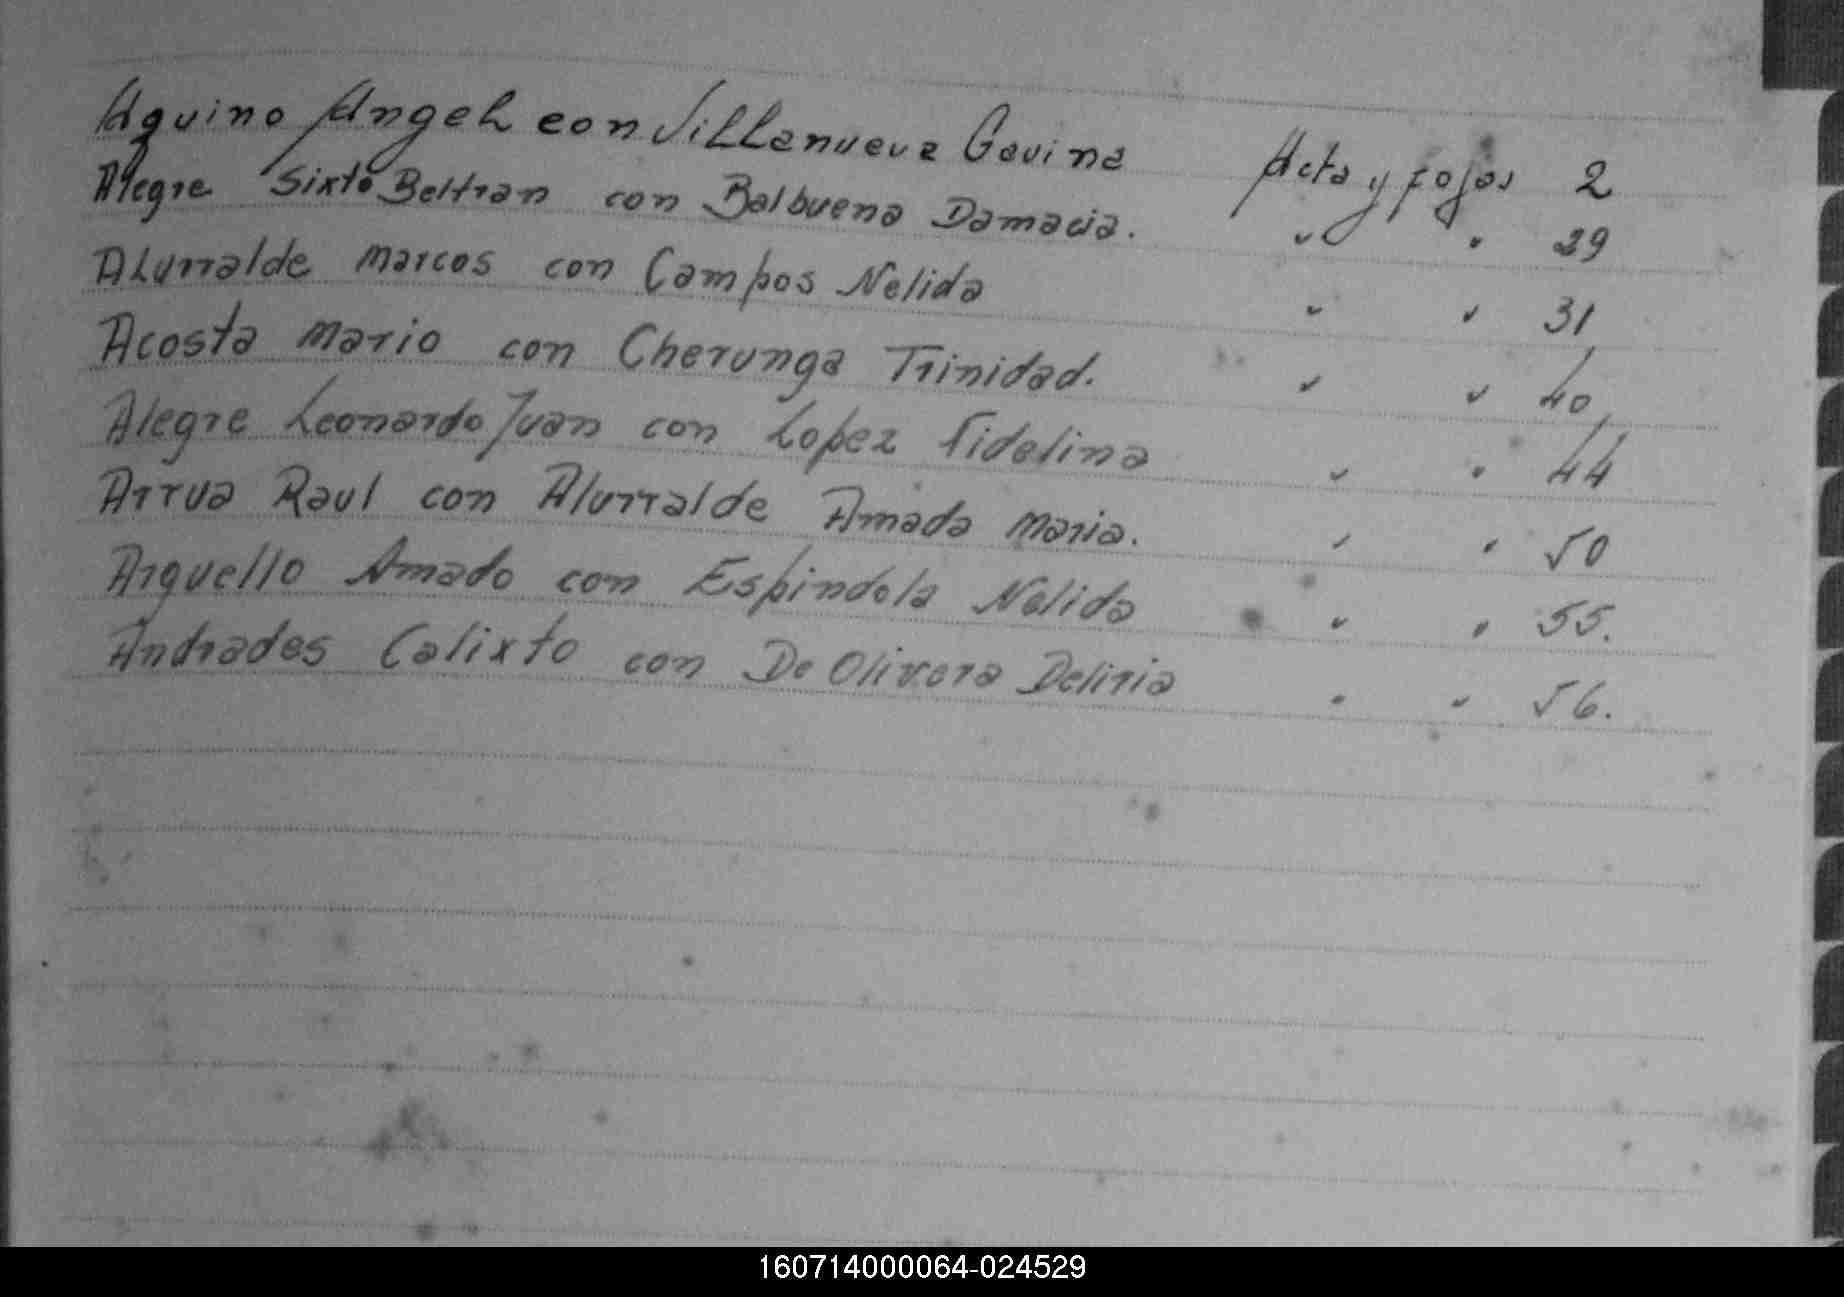 Aquino Angel con Villanueva Gavina Acta y fojas 2
Alegre Sixto Beltran con Balbuena Damacia. " " 29
Alurralde Marcos con Campos Nelida " " 31
Acosta Mario con Cherunga Trinidad. " " 40
Alegre Leonardo Juan con Lopez Fidelina " " 44
Arrua Raul con Alurralde Amada Maria. " " 50
Arguello Amado con Espindola Nelida " " 55.
Andrades Calixto con De Olivera Deliria " " 56.
160714000064-024529